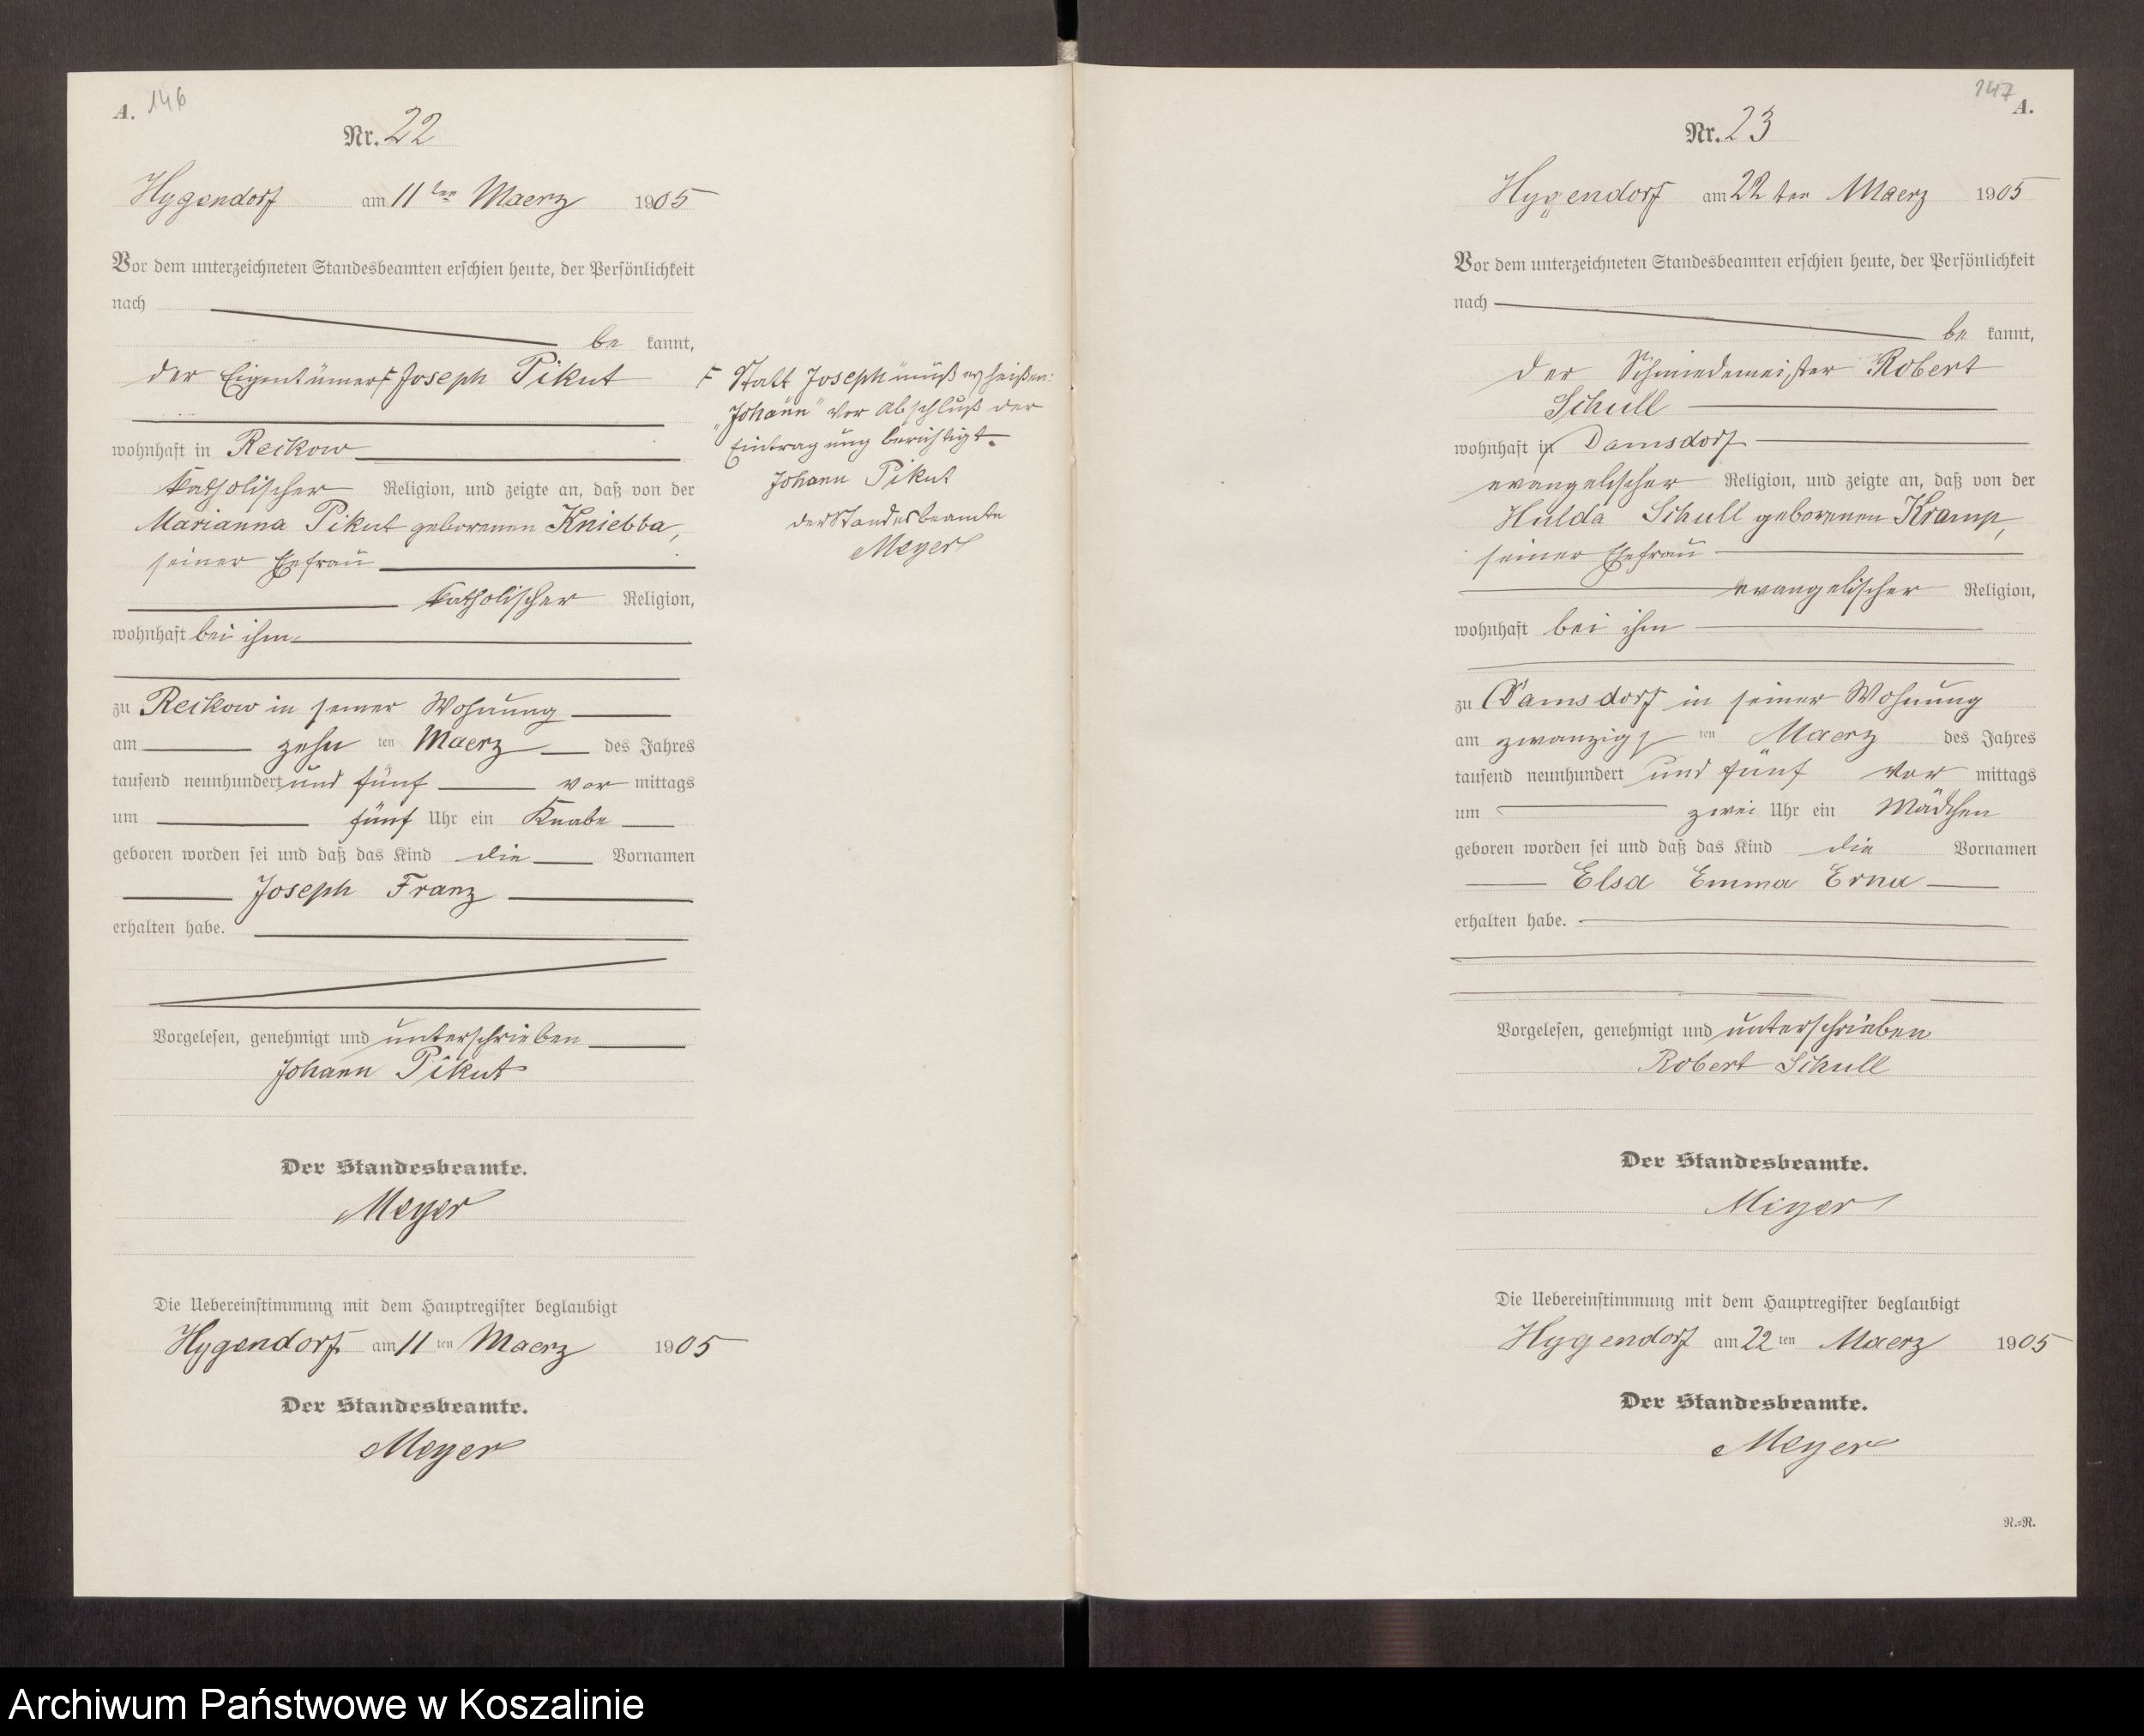 A. 146
Nr. 22
Hygendorf am 11ten Maerz 1905
Vor dem unterzeichneten Standesbeamten erschien heute, der Persönlichkeit
nach
be kannt,
der Eigentümer F Joseph Pikut
wohnhaft in Reikow
katholischer Religion, und zeigte an, daß von der
Marianna Pikut geborenen Kniebba,
seiner Ehefrau
katholischer Religion,
wohnhaft bei ihm
zu Reikow in seiner Wohnung
am zehn ten Maerz des Jahres
tausend neunhundert und fünf vor mittags
um fünf Uhr ein Knabe
geboren worden sei und daß das Kind die Vornamen
Joseph Franz
erhalten habe.
Vorgelesen, genehmigt und unterschrieben
Johann Pikut
Der Standesbeamte.
Meyer
Die Uebereinstimmung mit dem Hauptregister beglaubigt
Hygendorf am 11 ten Maerz 1905
Der Standesbeamte.
Meyer
F Statt Joseph" muß es heißen:
"Johann" vor Abschluß der
Eintragung berichtigt.
Johann Pikut
der Standesbeamte
Meyer
147 A.
Nr. 23
Hygendorf am 22 ten Maerz 1905
Vor dem unterzeichneten Standesbeamten erschien heute, der Persönlichkeit
nach
be kannt,
der Schmiedemeister Robert
Schull
wohnhaft in Damsdorf
evangelischer Religion, und zeigte an, daß von der
Hulda Schull geborenen Kramp,
seiner Ehefrau
evangelischer Religion,
wohnhaft bei ihm
zu Damsdorf in seiner Wohnung
am zwanzigs ten Maerz des Jahres
tausend neunhundert und fünf vor mittags
um zwei Uhr ein Mädchen
geboren worden sei und daß das Kind die Vornamen
Elsa Emma Erna
erhalten habe.
Vorgelesen, genehmigt und unterschrieben
Robert Schull
Der Standesbeamte.
Meyer
Die Uebereinstimmung mit dem Hauptregister beglaubigt
Hygendorf am 22 ten Maerz 1905
Der Standesbeamte.
Meyer
R.=R.
Archiwum Państwowe w Koszalinie